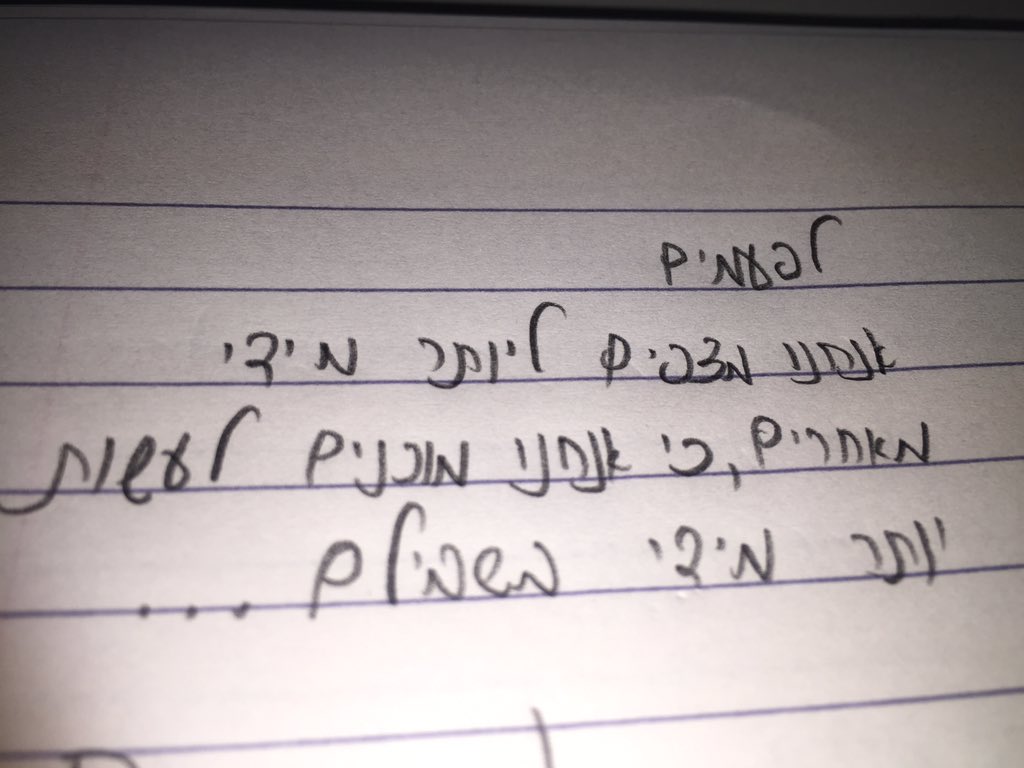 לפעמים
אנחנו מצפים ליותר מידי
מאחרים, כי אנחנו מוכנים לעשות
יותר מידי בשבילם ...